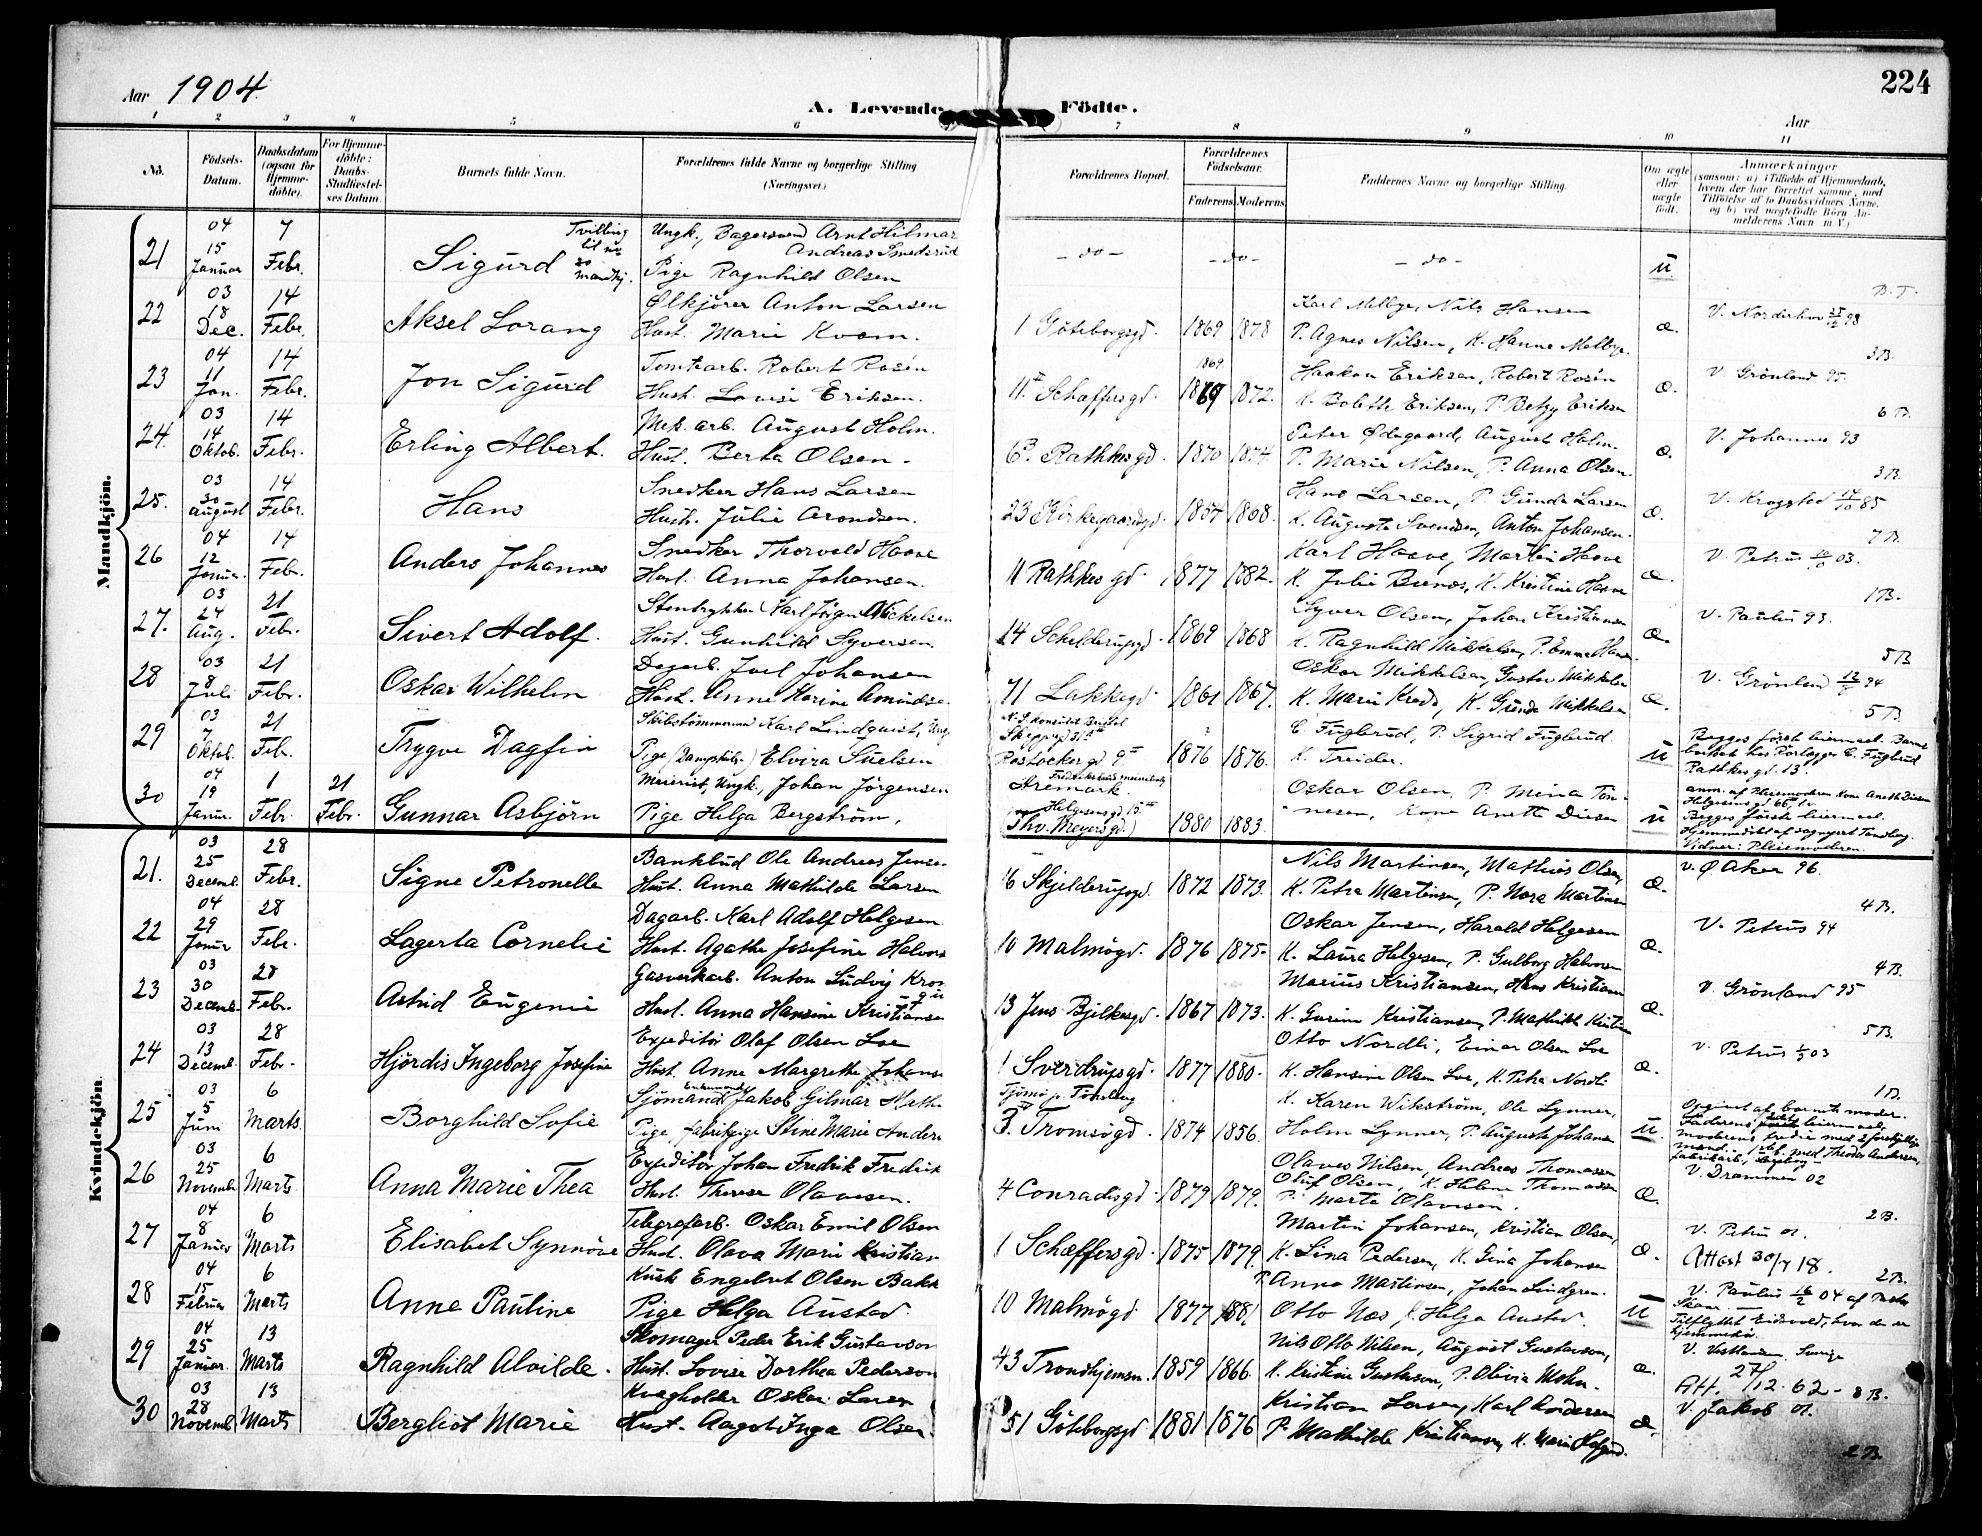 224
Aar 1904.
A. Levende Födte.
Aar
1 2 3 4 5 6 7 8 9 10 11
No. Födsels-Datum. Daabsdatum (ogsaa for Hjemmedöbte). For Hjemmedöbte: Daabs-Stadfæstelses Datum. Barnets fulde Navn. Forældrenes fulde Navne og borgerlige Stilling (Næringsvei.) Forældrenes Bopæl. Forældrenes Födselsaar. Faderens. Moderens. Faddernes Navne og borgerlige Stilling. Om ægte eller uægte født.
Anmærkninger
(saasom: a) i Tilfælde af Hjemmedaab,
hvem der har forrettet samme, med
Tilföielse af to Daabsvidners Navne,
og b) ved uægtefödte Börn Anmelderens Navn m. V.)
Mandkjön.
21 04 15 Januar 7 Febr. Sigurd Tvilling til no 20 mandkj. Ungk., Bagersvend Arnt Hilmar
Andreas Smedsrud
Pige Ragnhild Olsen -do- -do- -do- u
B.T.
22 03 18 Dec. 14 Febr. Aksel Lorang Ølkjörer Anton Larsen
Hust. Marie Kvam. 1 Göteborgsgd. 1869 1878 Karl Melbye, Nils Hansen
P. Agnes Nilsen, K. Hanna Melbye. æ. V. Norderhov 98
3 B.
23 04 11 Jan. 14 Febr. Jon Sigurd Tomtearb. Robert Rosén
Hust. Lovise Eriksen. 11 Schæffersgd. 1869 1872. Haakon Eriksen, Robert Rosén
K. Bolette Eriksen, P. Betzy Eriksen æ. V. Grönland 95.
6 B.
24. 03 14 Oktob. 14 Febr. Erling Albert. Mek. arb. August Holm.
Hust. Berta Olsen. 6 Rathkesgd. 1870 1874. Peter Ødegaard, August Holm.
P. Marie Nilsen, P. Anna Olsen. æ. V. Johannes 93
3 B.
25. 03 30 August 14 Febr. Hans Snedker Hans Larsen
Hust. Julie Arondsen. 23 Kirkegaardsgd. 1868. Hans Larsen, P. Gunda Larsen
K. Auguste Svendsen, Anton Johansen. æ. V. Krogsted 85
7 B.
26 04 12 Januar. 14 Febr. Anders Johannes Snedker Thorvald Haave
Hust. Anna Johansen. 11 Rathkesgd. 1877 1882. Karl Haave, Martin Haave
K. Julie, K. Kristine Haave æ. V. Petrus 03.
1 B.
27. 03 24 Aug. 21 Febr. Sivert Adolf. Karl Jörgen Mickelsen
Hust. Gunhild Syversen. 14 Schelderupsgd. 1869 1868 Syver Olsen, Johan Kristiansen
K. Ragnhild Mikkelsen, P. Emma Hansen. æ. V. Paulus 93.
5 B
28 03 8 Juli 21 Febr. Oskar Wilhelm Dagarb. Joel Johansen
Hust. Anne Marine 71 Lakkegd. 1861 1867. Oskar Mikkelsen, Gustav Mikkelsen
K. Marie, K. Gunda Mikkelsen æ. V. Grönland 94
5 B
29 03 7 Oktob. 21 Feb. Trygve Dagfin Skibstömmermand Karl Lindquist, Ung
Pige Elvira
Rostockergd 9 1876 1876. E. Fuglerud, P. Sigrid Fuglerud.
K. Treider. u Begges første leiermaal. Barnet
Fuglerud
Rathkesgd. 13.
30 04 19 Januar. 1 Febr. 21 Febr. Gunnar Asbjörn Meierist, Ungk., Johan Jörgensen
Pige Helga Bergström. Aremark.
Helgesensgd 15
(Thv. Meyersgd.) 1880 1883. Oskar Olsen, P. Mina Tön-
nesen, Kone Anette u anm. af Pleiemoderen Kone Anette
Helgesens gd 66.
Begges første leiermaal.
Hjemmedöbt af sogneprest Tandberg.
Vidner: Pleiemoderen.
Kvindekjön.
21. 03 25 Decemb. 28 Febr. Signe Petronelle Bankbud Ole Andreas Jense
Hust. Anna Mathilde Larsen 16 Skjelderupsgd. 1872 1873. Nils Martinsen, Mathias Olsen,
K. Petra Martinsen, P. Nora Martinsen æ. v. Ø Aker 96.
4 B.
22 04 29 Januar 28 Febr. Lagerta Cornelie Dagarb. Karl Adolf Helgesen
Hust. Agathe Josefine Halvors 10 Malmögd. 1876 1875. Oskar Jensen, Harald Helgesen
K. Laura Helgesen, P. Gulborg Halvorsen æ. V. Petrus 94
4 B.
23 03 30 Decemb. 28 Febr. Astrid Eugenie Gasverkarb. Anton Ludvig
Hust. Anna Hansine Kristianse 13 Jens Bjelkesgd. 1867 1873. Marius Kristiansen, Hans Kristiansen
K. Gurine Kristiansen, P. Mathilde æ. V. Grönland 95
5 B.
24 03 13 Decemb. 28 Feb. Hjördis Ingeborg Josefine Expeditör Olaf Olsen Loe
Hust. Anne Margrethe Johanse 1 Sverdrupsgd. 1877 1880. Otto Nordli, Einar Olsen Loe
K. Hansine Olsen Loe, K. Petra Nordli æ. V. Petrus 03
1 B.
25 03 5 Juni 6 Marts. Borghild Sofie Sjömand Enkemand Jakob Gilmar Math
Pige, fabrikpige Stine Marie Ander Tjömö p. Tönsberg
3. Tromsögd. 1874 1856. K. Karen Wikström, Ole Lynner,
Holm Lynner, P. Augusta Johansen u. Opgivet af barnets moder.
Faderens leiermaal,
moderens tredie med 2 forskjellige
mænd. 1 leb. med Theodor Andersen,
26 03 25 Novemb. 6 Marts. Anna Marie Thea Expeditör Johan Fredrik Fredrik
Hust. Therese Olavesen. 4 Conradisgd. 1879 1879. Olaves Nilsen, Andreas Thomassen
Oluf Olsen, K. Helene Thomassen
P. Marte Olavesen. æ. V. Drammen 02
2 B.
27 04 8 Januar 6 Marts Elisabet Synnöve Telegrafarb. Oskar Emil Olsen
Hust. Olava Marie Kristian 1 Schæffersgd. 1875 1879. Martin Johansen, Kristian Olsen,
K. Lina Pedersen, K. Gina Johansen æ. V. Petrus 01.
Attest 30/7 18.
2 B.
28 04 15 Februar 6 Marts Anne Pauline Kusk Engebret Olsen Bakk
Pige Helga Austad. 10 Malmögd. 1877 1881 P. Anna Martinsen, Johan Lindgren.
Otto Næs, Helga Austad. u V. Paulus 04 af
Tilflyttet Eidsvold, hvor de er
hjemmehör.
29 04 25 Januar. 13 Marts Ragnhild Alvilde. Skomager Peder Erik Gustavson
Hust. Lovise Dorthea Pederson 43 Trondhjemsv. 1859 1866. Nils Otto Nilsen, August Gustavson,
K. Kristine Gustavson, P. Olivia Mohn. æ. V. Sverige
Att. 27/12 62 - 8 B.
30 03 28 Novemb. 13 Marts Bergliot Marie Kvægholder Oskar Larsen
Hust. Aagot Inga Olsen. 51 Göteborgsgd 1881 1876 Kristian Larsen, Karl Andersen
P. Mathilde Kristiansen, K. Marie æ. V. Jakob 01.
2 B.